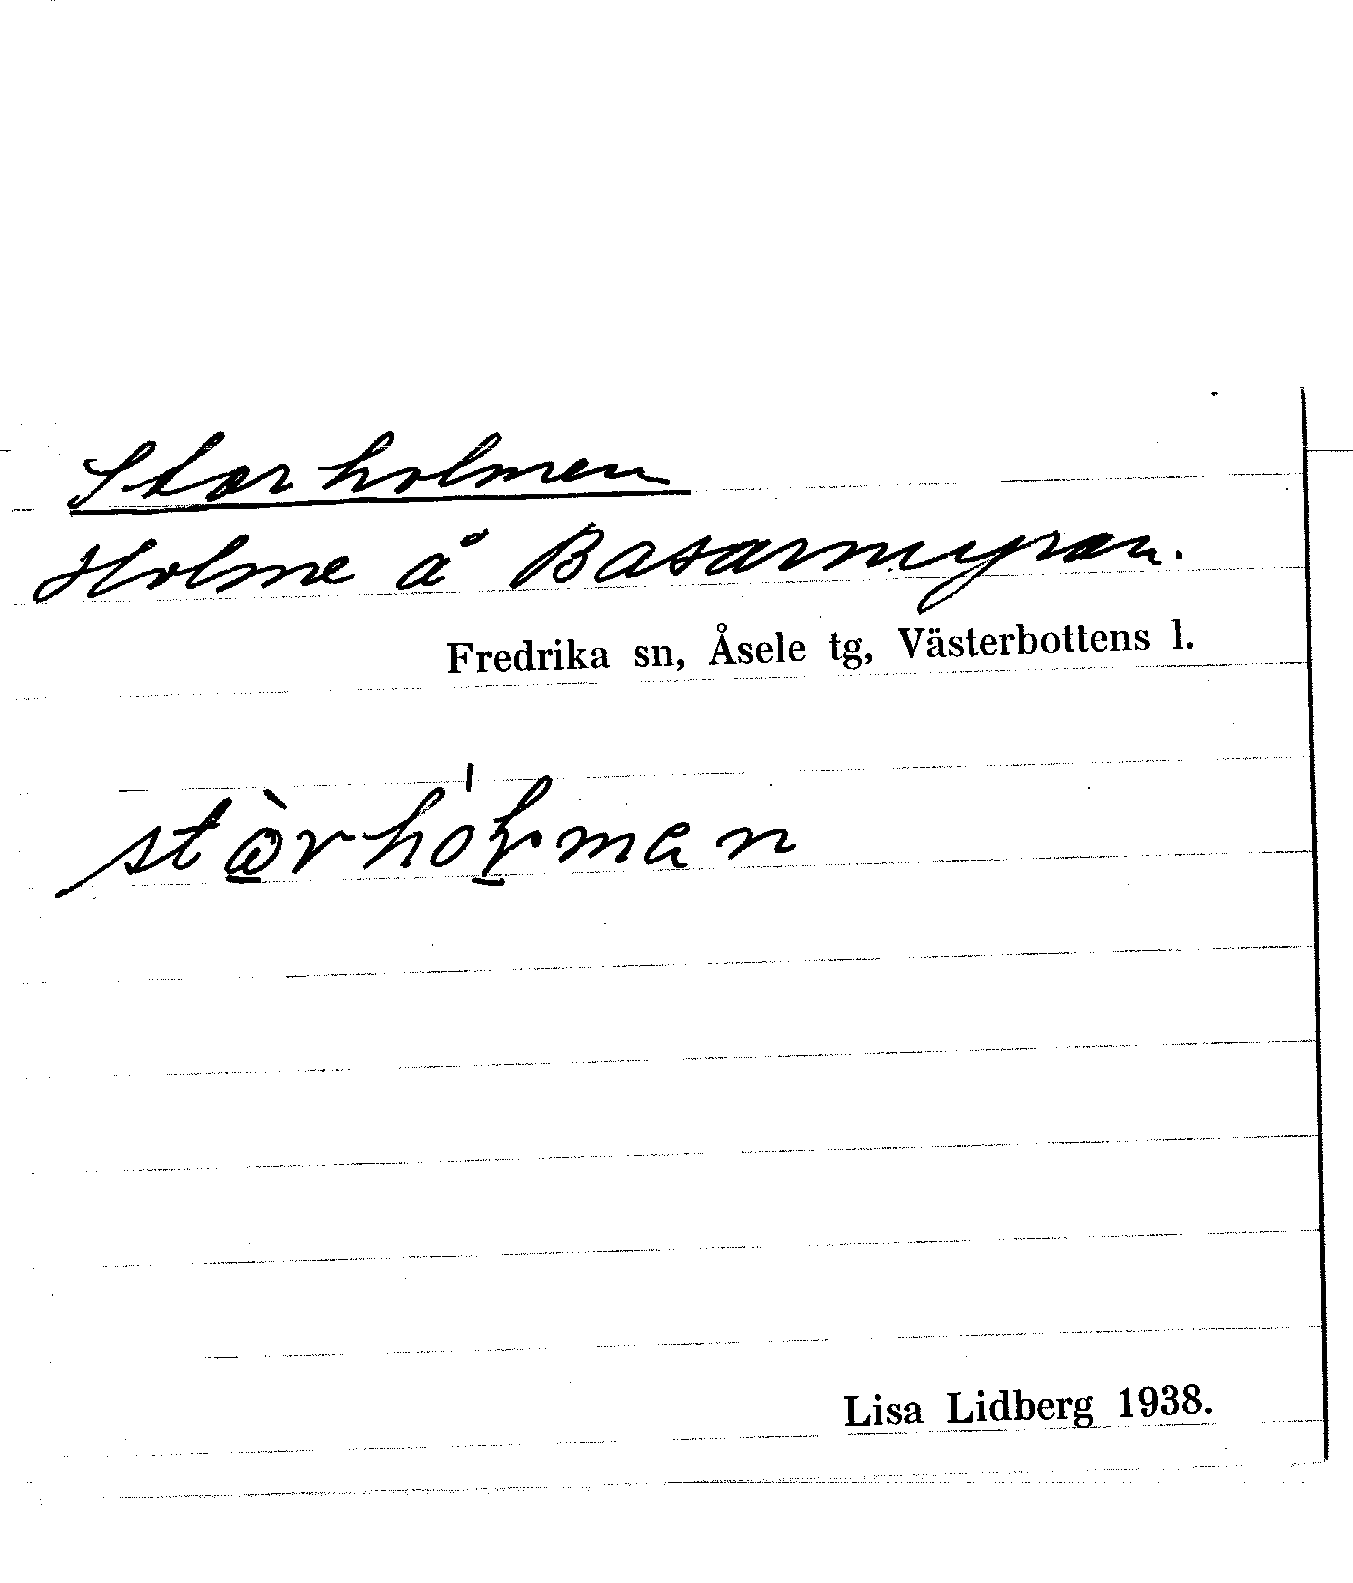 Storholmen
Holme å Basarmyran.
Fredrika sn, Åsele tg, Västerbottens l.
Lisa Lidberg 1938.